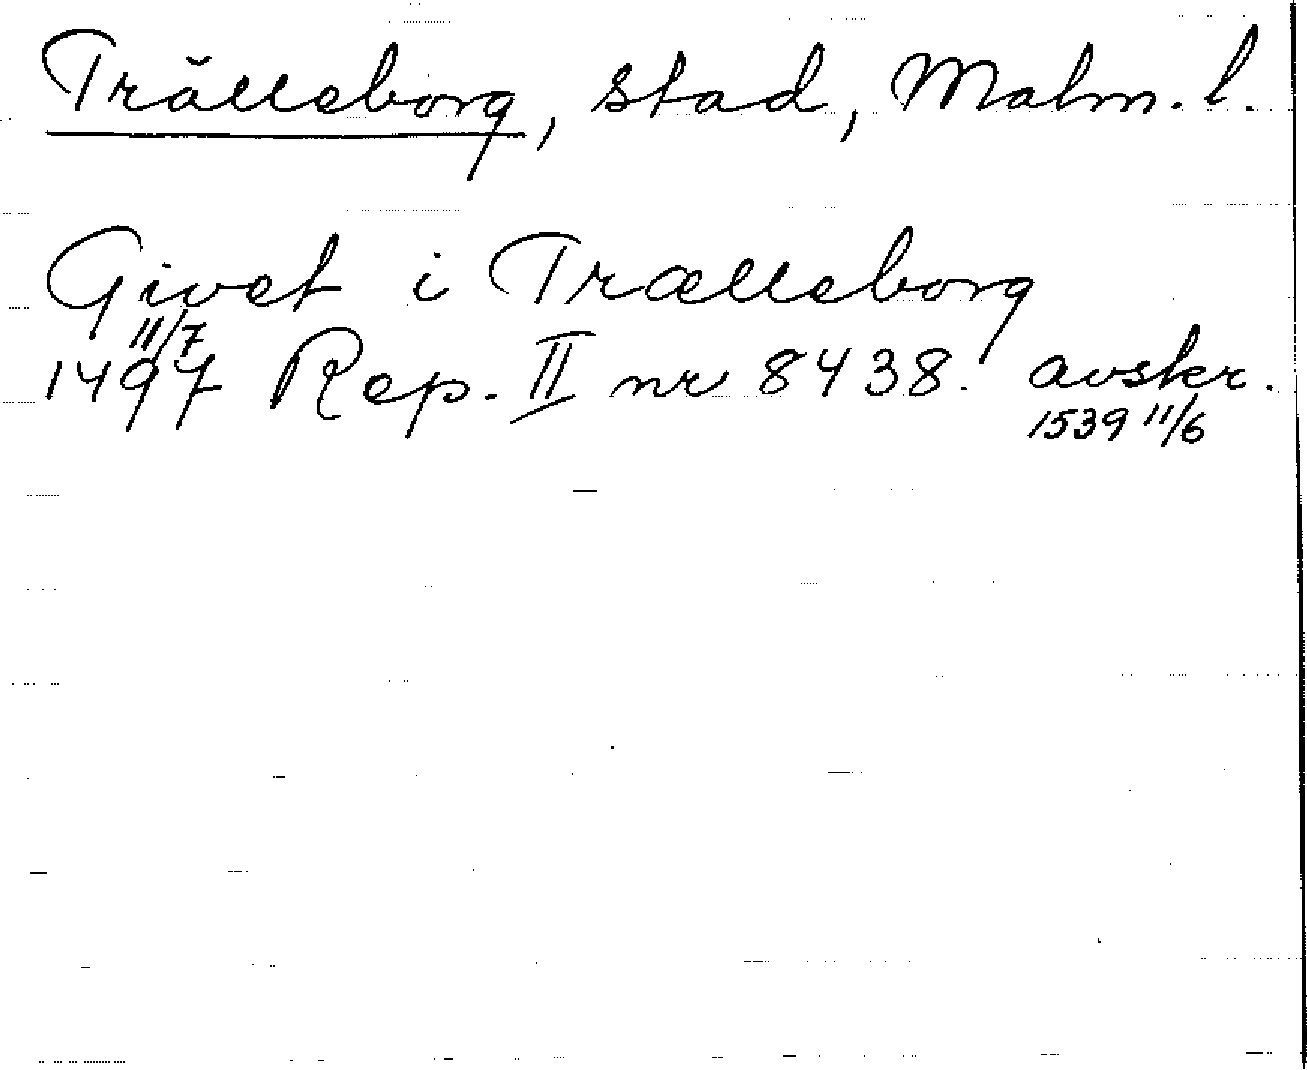 Trälleborg, stad, Malm. l.
Givet i Trælleborg
11/7
1497 Rep. II nr 8438. avskr.
1539 11/6